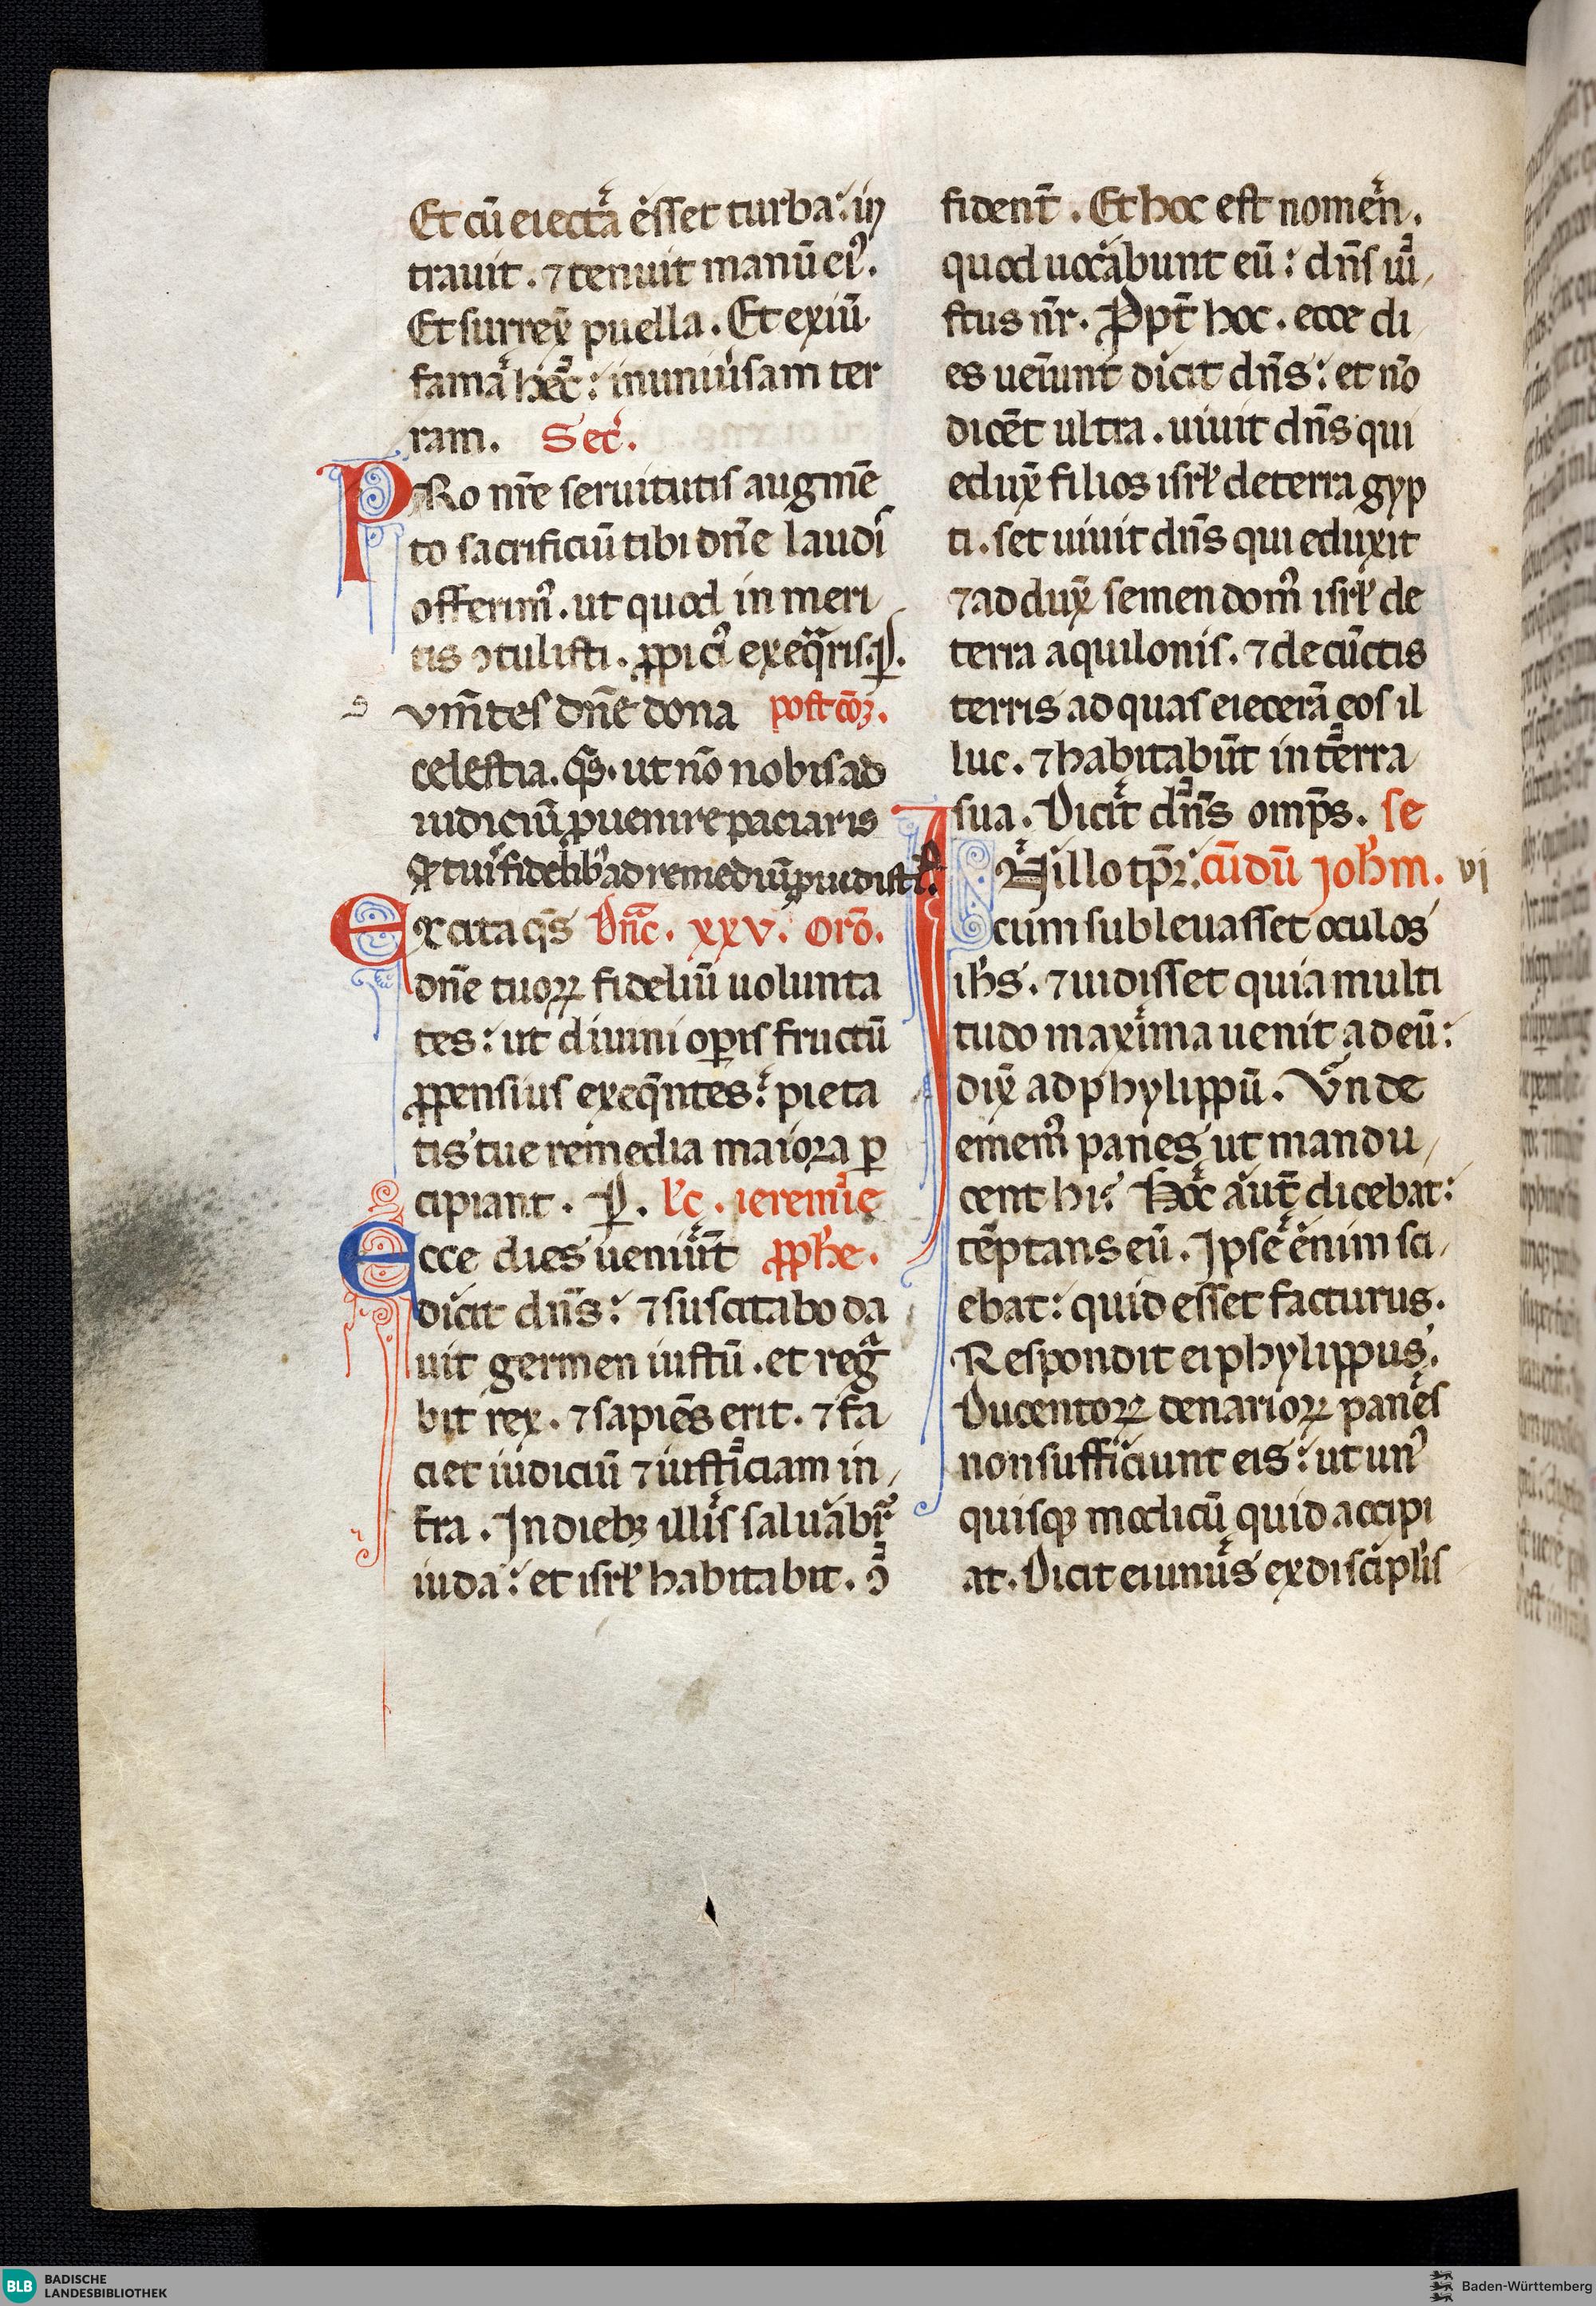 Et cū eiectā esset turba: in
trauit. ⁊ tenuit manū eiꝰ.
Et surrex̄ puella. Et exiu̅
fama hec̄: in uniuͥsam ter
ram. Sec̄.
PRo nr̄e seruitutis augmē
to sacrificiū tibi dn̄e laudͥs
offerimꝰ. ut quod in meri
tis ꝯtulisti. ꝓpiciꝰ exeq̄ris. ꝑ.
s vm̄tes dn̄e dona postcōꝫ.
celestia. qs̄. ut nō nobis ad
iudiciū ꝑuenire paciaris
Q tuis fidelibꝰ ad remediū ꝓuidisti. ꝑ
Excita qs̄ Dn̄c. xxv. orō.
dn̄e tuoꝝ fideliū uolunta
tes: ut diuini oꝑis fructū
ꝓpensius exeq̄ntes: pieta
tis tue remedia maiora ꝑ
cipiant. ꝑ. lc̄. ieremie
Ecce dies ueniūt ꝓphe.
dicit dn̄s: ⁊ suscitabo da
uit germen iustū. et regͣ
bit rex. ⁊ sapiēs erit. ⁊ fa
ciet iudiciū ⁊ iusticiam in
t̄ra. In diebꝫ illis saluabiť
iuda: et isrł habitabit. ꝯ
fident̄. Et hoc est nomen.
quod uocabunt eū: dn̄s iu
stus nr̄. Ppt̄ hoc. ecce di
es uen̄iunt dicit dn̄s: et nō
dicēt ultra. uiuit dn̄s qui
edux̄ filios isrł de terra gyp
ti. set uiuit dn̄s qui eduxit
⁊ addux̄ semen domꝰ isrł de
terra aquilonis. ⁊ de cūctis
terris ad quas eiecerā eos il
luc. ⁊ habitabūt in terra
sua. Dicit dn̄s omp̄s. se
IN illo tp̄r. cūdū Joħm. vi
cum subleuasset oculos
iħs. ⁊ uidisset quia multi
tudo maxima uenit ad eū:
dix̄ ad phylippū. Vnde
ememꝰ panes ut mandu
cent hi? Hoc aut̄ dicebat:
tēptans eū. Ipse enim sci
ebat: quid esset facturus.
Respondit ei phylippus.
Ducentoꝝ denarioꝝ panes
non sufficiunt eis: ut unꝰ
quisqꝫ modicū quid accipi
at. Dicit ei unus ex discipłis
BLB BADISCHE
LANDESBIBLIOTHEK
Baden-Württemberg